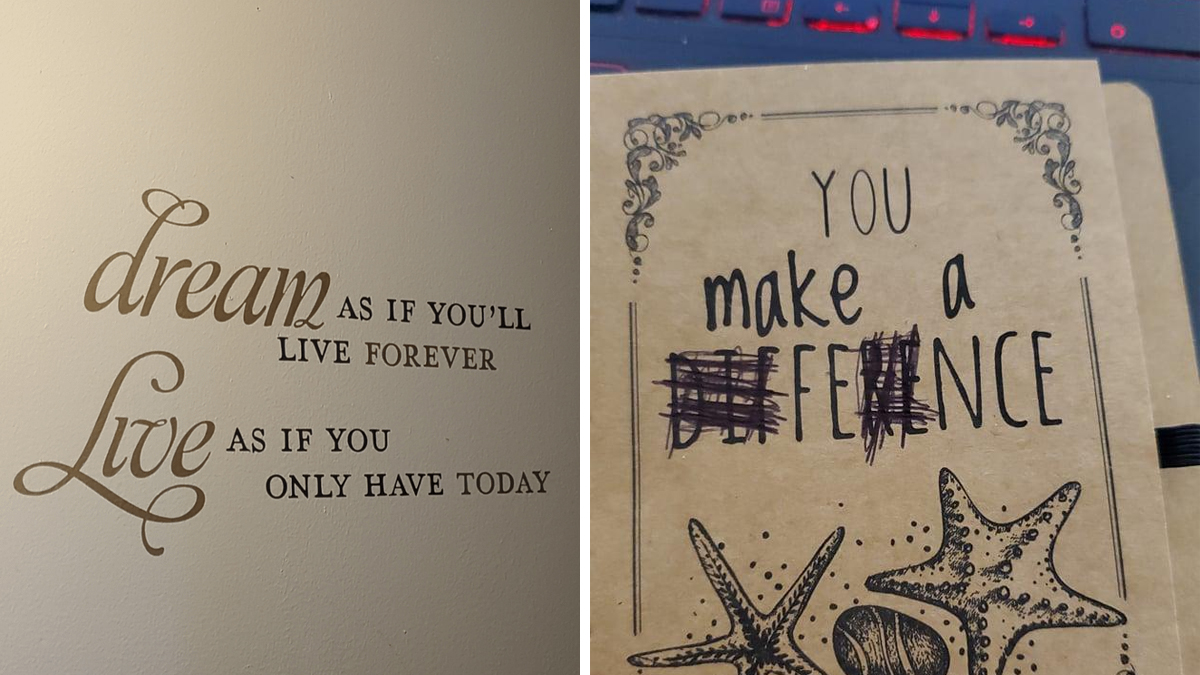 dream AS IF YOU'LL
LIVE FOREVER
Live AS IF YOU
ONLY HAVE TODAY
YOU
make a
DIFFERENCE